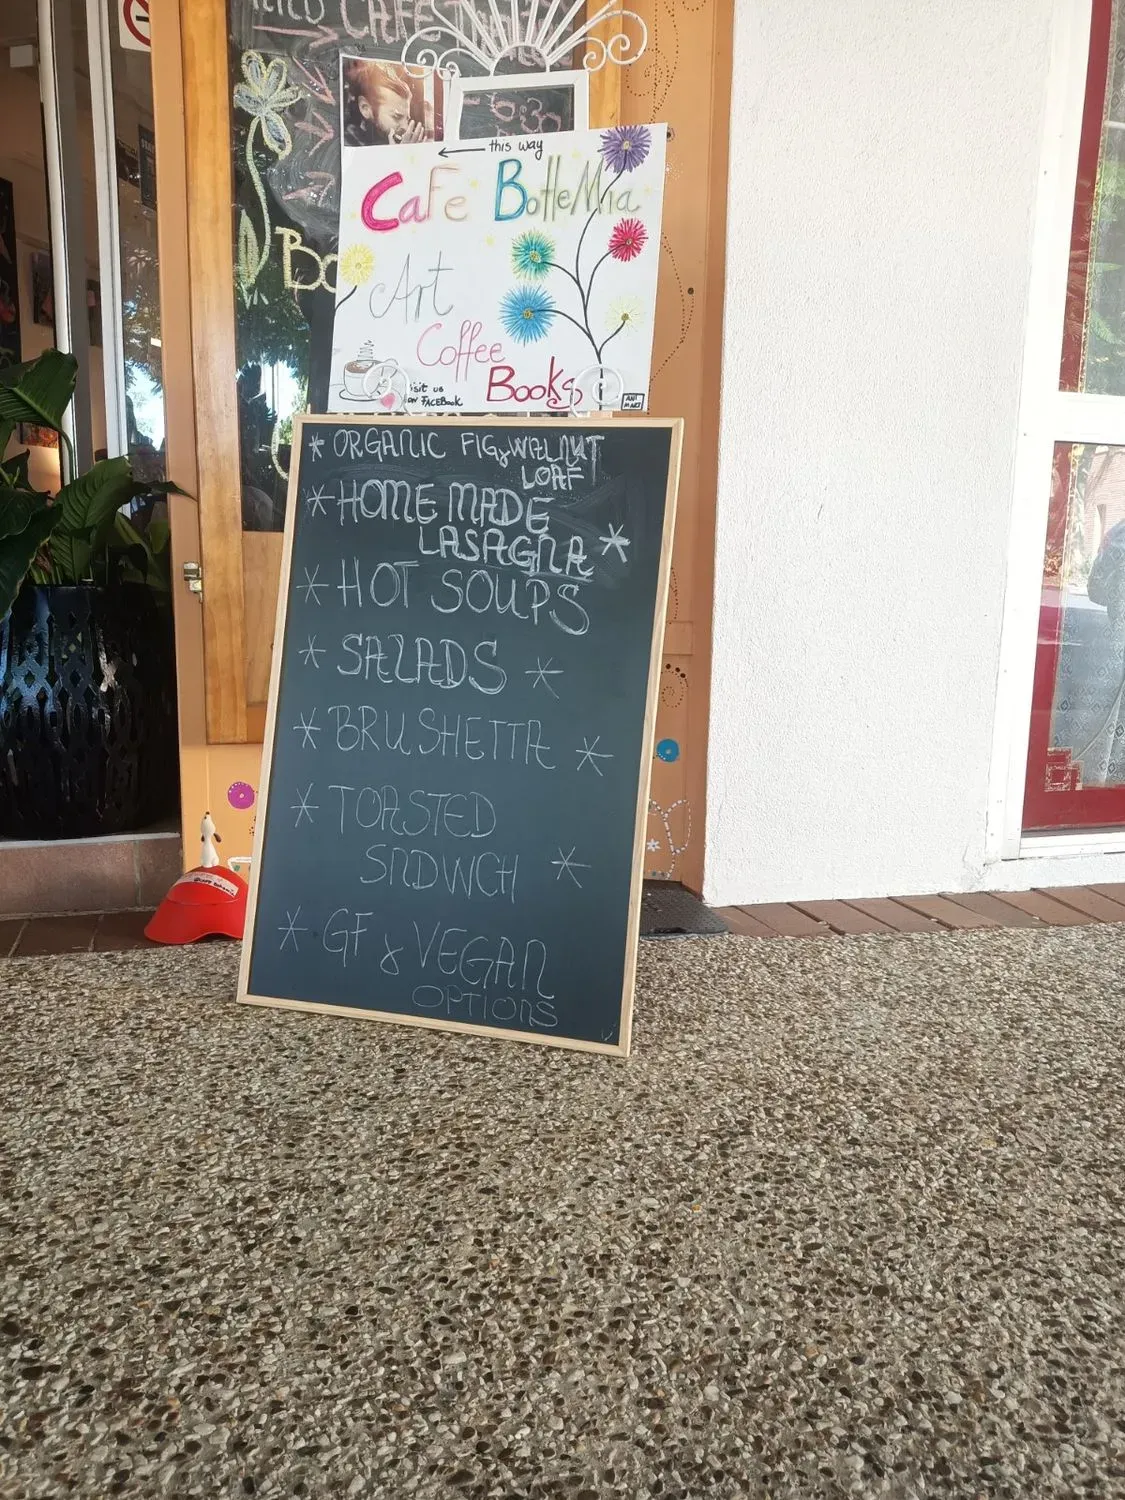 CAFE
← this way
Cafe BoHeMia
Art
Coffee
Books
visit us
on FACEBook
ANI
MART
Bo
* ORGANIC FIG & WALNUT
LOAF
* HOME MADE
LASAGNA *
* HOT SOUPS
* SALADS *
* BRUSHETTA *
* TOASTED
SNDWCH *
* GF & VEGAN
OPTIONS